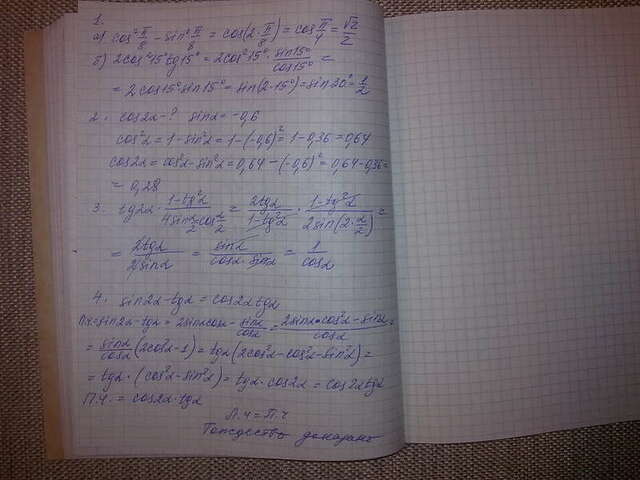 1.
а) cos² π/8 - sin² π/8 = cos(2·π/8) = cos π/4 = √2/2
б) 2cos²15° tg15° = 2cos²15° · sin15°/cos15° =
= 2cos15° sin15° = sin(2·15°) = sin30° = 1/2
2. cos2α - ? sinα = -0,6
cos²α = 1 - sin²α = 1 - (-0,6)² = 1 - 0,36 = 0,64
cos2α = cos²α - sin²α = 0,64 - (-0,6)² = 0,64 - 0,36 =
= 0,28
3. tg2α · (1-tg²α)/(4sin α/2 cos α/2) = 2tgα/(1-tg²α) · (1-tg²α)/(2sin(2·α/2)) =
= 2tgα/2sinα = sinα/(cosα·sinα) = 1/cosα
4. sin2α - tgα = cos2α tgα
Л.ч = sin2α - tgα = 2sinα cosα - sinα/cosα = (2sinα·cos²α - sinα)/cosα =
= sinα/cosα (2cos²α - 1) = tgα (2cos²α - cos²α - sin²α) =
= tgα · (cos²α - sin²α) = tgα · cos2α = cos2α tgα
П.Ч. = cos2α · tgα
Л.ч = П.ч
Тождество доказано